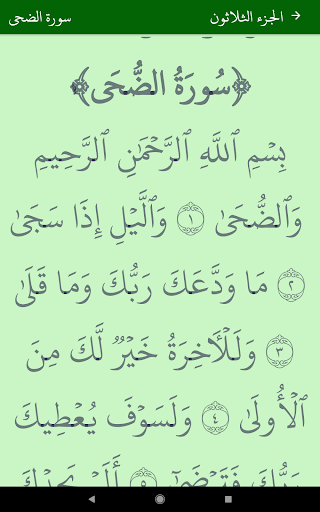 الجزء الثلاثون → سورة الضحى
﴿سُورَةُ الضُّحَى﴾
بِسۡمِ ٱللَّهِ ٱلرَّحۡمَٰنِ ٱلرَّحِيمِ
وَٱلضُّحَىٰ ١ وَٱلَّيۡلِ إِذَا سَجَىٰ
٢ مَا وَدَّعَكَ رَبُّكَ وَمَا قَلَىٰ
٣ وَلَلۡأٓخِرَةُ خَيۡرٞ لَّكَ مِنَ
ٱلۡأُولَىٰ ٤ وَلَسَوۡفَ يُعۡطِيكَ
رَبُّكَ فَتَرۡضَىٰٓ ٥ أَلَمۡ يَجِدۡكَ